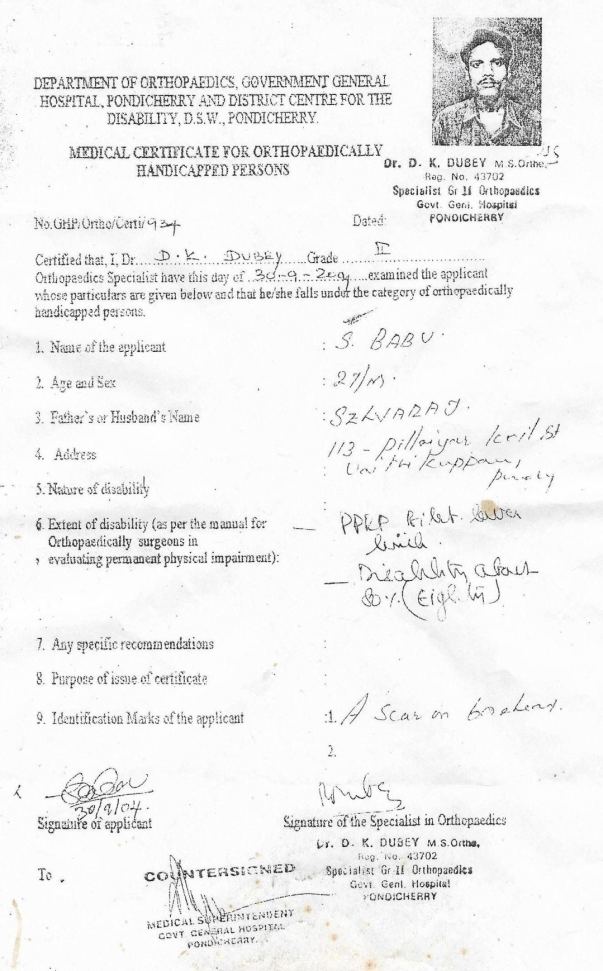 DEPARTMENT OF ORTHOPAEDICS, GOVERNMENT GENERAL
HOSPITAL, PONDICHERRY AND DISTRICT CENTRE FOR THE
DISABILITY, D.S.W., PONDICHERRY.
MEDICAL CERTIFICATE FOR ORTHOPAEDICALLY
HANDICAPPED PERSONS
Dr. D. K. DUBEY M.S.Ortho,
Reg. No. 43702
Specialist Gr II Orthopaedics
Govt. Genl. Hospital
PONDICHERRY
No.GHP/Ortho/Certi/934
Dated:
Certified that, I, Dr.... D.K. DUBEY ....Grade ....II....
Orthopaedics Specialist have this day of 30-9-2004 ....examined the applicant
whose particulars are given below and that he/she falls under the category of orthopaedically
handicapped persons.
1. Name of the applicant : S. BABU.
2. Age and Sex : 27/M.
3. Father's or Husband's Name : SELVARAJ.
4. Address 113 - Pillaiyar Koil St
Vaithikuppam,
5. Nature of disability :
6. Extent of disability (as per the manual for
Orthopaedically surgeons in
evaluating permanent physical impairment):
— PPRP Bilat. lower
limb.
— Disability about
80%. (Eighty)
7. Any specific recommendations :
8. Purpose of issue of certificate :
9. Identification Marks of the applicant :1. A scar on forehead.
2.
30/9/04.
Signature of applicant
Signature of the Specialist in Orthopaedics
Dr. D. K. DUBEY M.S.Ortho,
Reg. No. 43702
Specialist Gr II Orthopaedics
Govt. Genl. Hospital
PONDICHERRY
To
COUNTERSIGNED
MEDICAL SUPERINTENDENT
GOVT GENERAL HOSPITAL
PONDICHERRY.